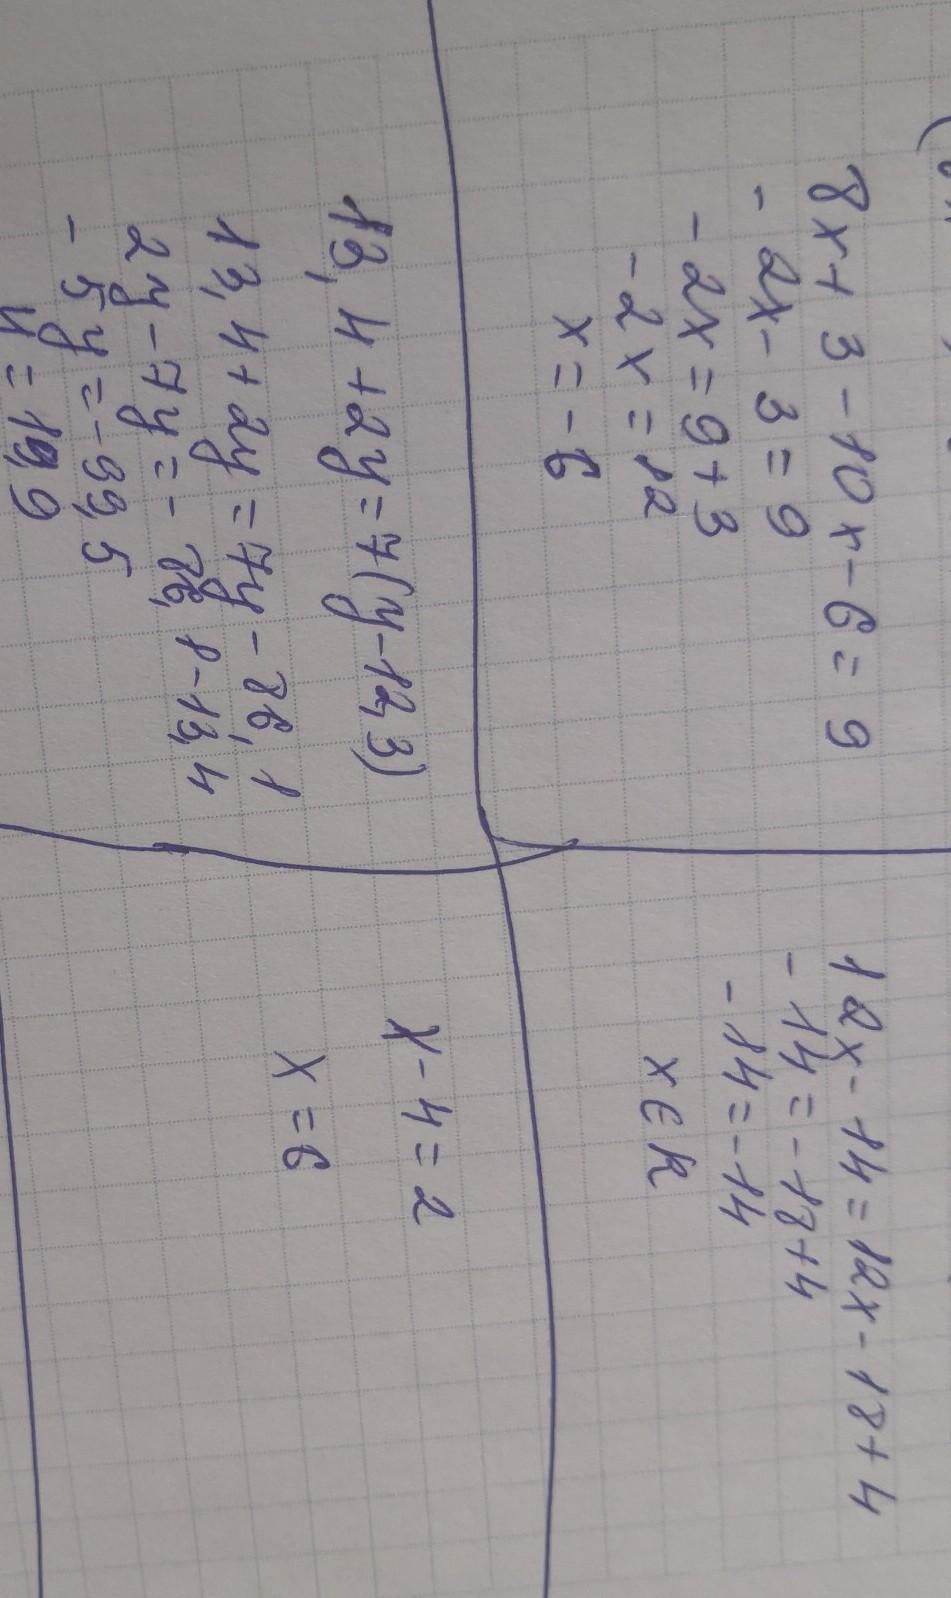 8x + 3 - 10x - 6 = 9
- 2x - 3 = 9
- 2x = 9 + 3
- 2x = 12
x = - 6
12x - 14 = 12x - 18 + 4
- 14 = - 18 + 4
- 14 = - 14
x ∈ R
13,4 + 2y = 7(y - 12,3)
13,4 + 2y = 7y - 86,1
2y - 7y = - 86,1 - 13,4
- 5y = - 99,5
y = 19,9
x - 4 = 2
x = 6